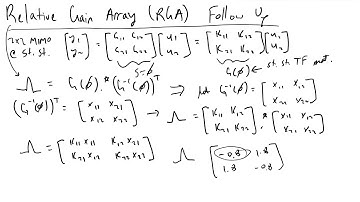 Relative Gain Array (RGA) Follow Up
2x2 MIMO @ st. st. [y₁ y₂] = [G₁₁ G₁₂ G₂₁ G₂₂] [u₁ u₂] = [K₁₁ K₁₂ K₂₁ K₂₂] [u₁ u₂]
s=0 G(0) ← st. st. TF mat.
Λ = G(0) .* (G⁻¹(0))ᵀ ⇒ let G⁻¹(0) = [x₁₁ x₁₂ x₂₁ x₂₂]
(G⁻¹(0))ᵀ = [x₁₁ x₂₁ x₁₂ x₂₂] → Λ = [K₁₁ K₁₂ K₂₁ K₂₂] .* [x₁₁ x₂₁ x₁₂ x₂₂]
Λ = [K₁₁x₁₁ K₁₂x₂₁ K₂₁x₁₂ K₂₂x₂₂] Λ [-0.8 1.8 1.8 -0.8]